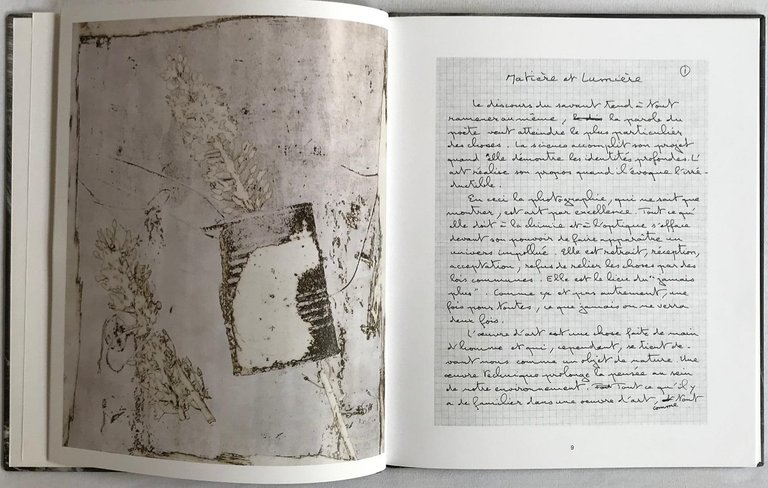 ①
Matière et Lumière
Le discours du savant tend à tout
ramener au même, la parole du
poète veut atteindre le plus particulier
des choses. La science accomplit son projet
quand elle démontre les identités profondes. L'
art réalise son propos quand il évoque l'irré-
ductible.
En ceci la photographie, qui ne sait que
montrer, est art par excellence. Tout ce qu'
elle doit à la chimie et à l'optique s'efface
devant son pouvoir de faire apparaître un
univers impollué. Elle est retrait, réception,
acceptation, refus de relier les choses par des
lois communes. Elle est le lieu du "jamais
plus". Comme ça et pas autrement, une
fois pour toutes, ce que jamais on ne verra
deux fois.
L'œuvre d'art est une chose faite de main
d'homme et qui, cependant, se tient de-
vant nous comme un objet de nature. Une
œuvre technique prolonge la pensée au sein
de notre environnement. Tout ce qu'il y
a de familier dans une œuvre d'art, tout
comme
9